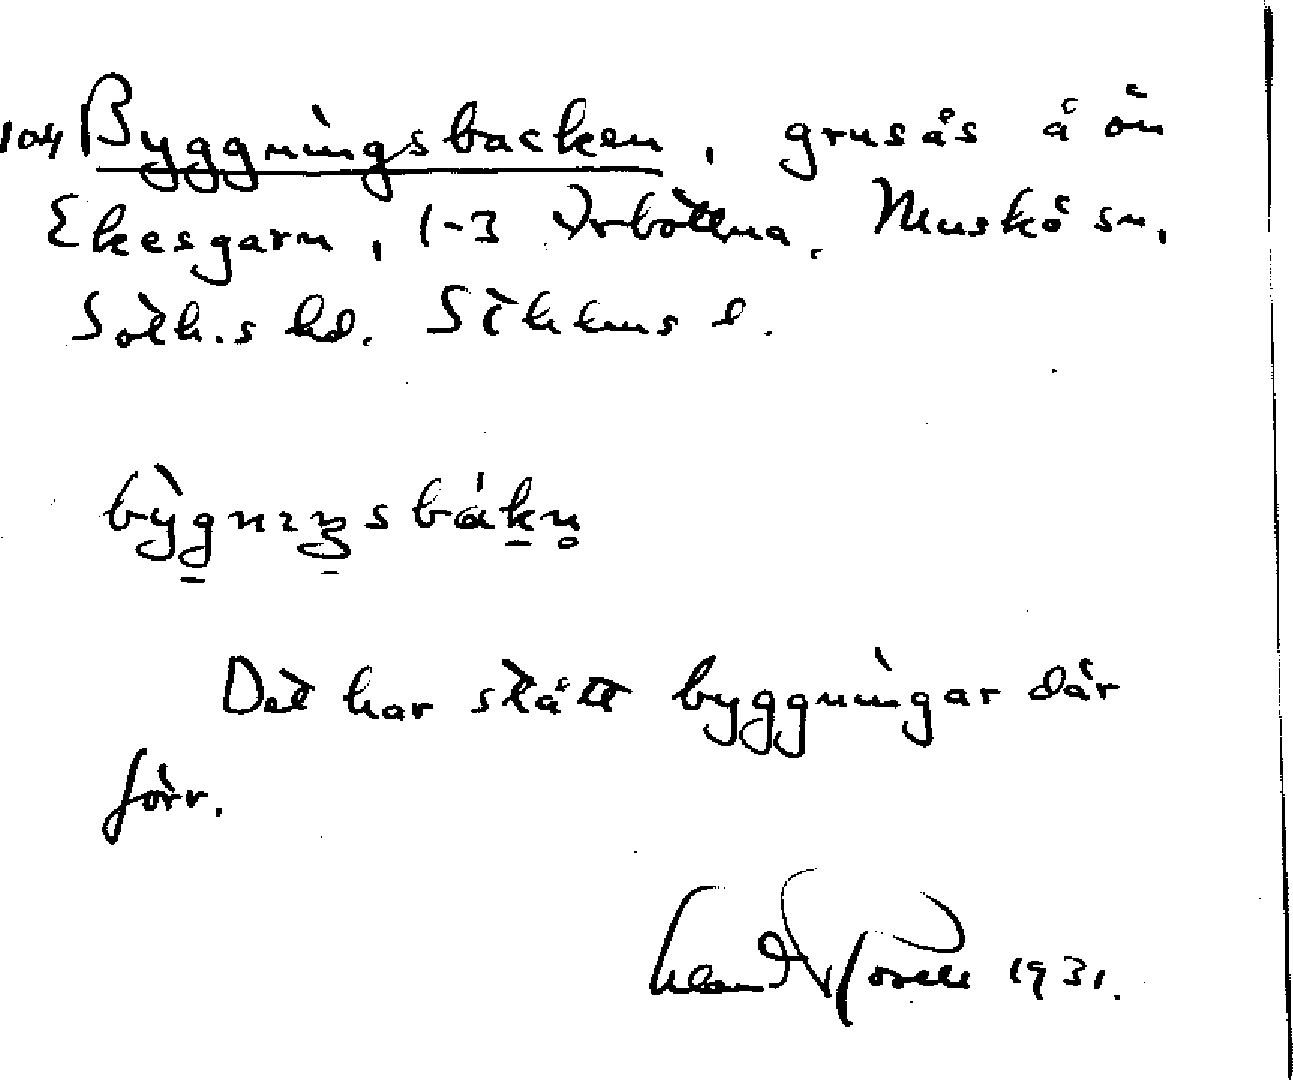 104 Byggningsbacken, grusås å ön
Ekesgarn, 1-3 Yrbottna. Muskö sn,
Soth.s hd. Sthlms l.
bỳg̠nıŋ̠sbák̠n̥
Det har stått byggningar där
förr.
1931.